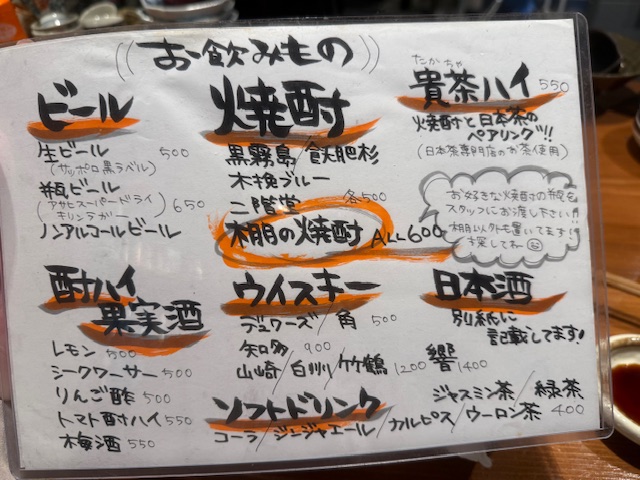 お飲みもの
ビール
生ビール 500
(サッポロ黒ラベル)
瓶ビール
(アサヒスーパードライ
キリンラガー) 650
ノンアルコールビール
焼酎
黒霧島/飫肥杉
木挽ブルー
二階堂 各500
棚の焼酎 ALL600
たかちゃ
貴茶ハイ 550
焼酎と日本茶の
ペアリング!!
(日本茶専門店のお茶使用)
お好きな焼酎の瓶を
スタッフにお渡し下さい!!
棚以外も置いてます!
探してね
酎ハイ
果実酒
レモン 500
シークワーサー 500
りんご酢 500
トマト酎ハイ 550
梅酒 550
ウイスキー
デュワーズ/角 500
知多 900
山崎/白州/竹鶴 1200 響 1400
日本酒
別紙に
記載してます!
ソフトドリンク
ジャスミン茶/緑茶
コーラ/ジンジャエール/カルピス/ウーロン茶 400